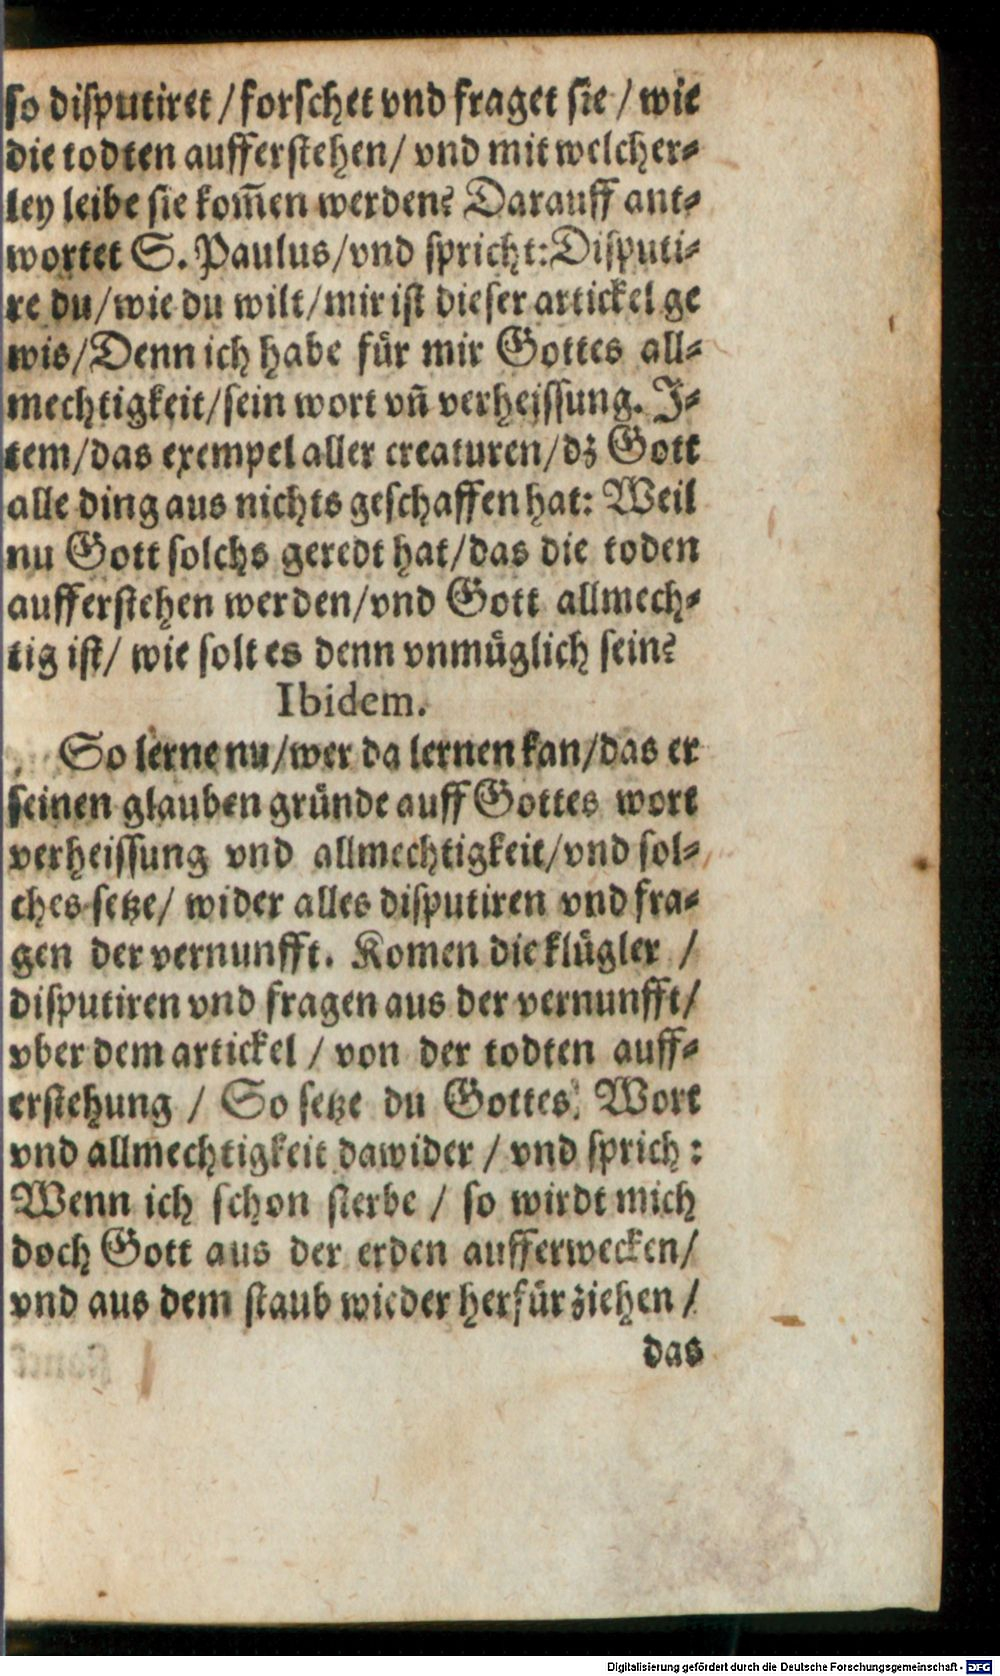 so disputiret / forschet vnd fraget sie / wie
die todten aufferstehen / vnd mit welcher⸗
ley leibe sie kom̃en werden? Darauff ant⸗
wortet S. Paulus / vnd spricht: Disputi⸗
re du / wie du wilt / mir ist dieser artickel ge
wis / Denn ich habe für mir Gottes all⸗
mechtigkeit / sein wort vñ verheissung. I⸗
tem / das exempel aller creaturen / dz Gott
alle ding aus nichts geschaffen hat: Weil
nu Gott solchs geredt hat / das die toden
aufferstehen werden / vnd Gott allmech⸗
tig ist / wie solt es denn vnmüglich sein?
Ibidem.
So lerne nu / wer da lernen kan / das er
seinen glauben gründe auff Gottes wort
verheissung vnd allmechtigkeit / vnd sol⸗
ches setze / wider alles disputiren vnd fra⸗
gen der vernunfft. Komen die klügler /
disputiren vnd fragen aus der vernunfft /
vber dem artickel / von der todten auff⸗
erstehung / So setze du Gottes Wort
vnd allmechtigkeit dawider / vnd sprich:
Wenn ich schon sterbe / so wirdt mich
doch Gott aus der erden aufferwecken /
vnd aus dem staub wieder herfür ziehen /
das
Digitalisierung gefördert durch die Deutsche Forschungsgemeinschaft - DFG